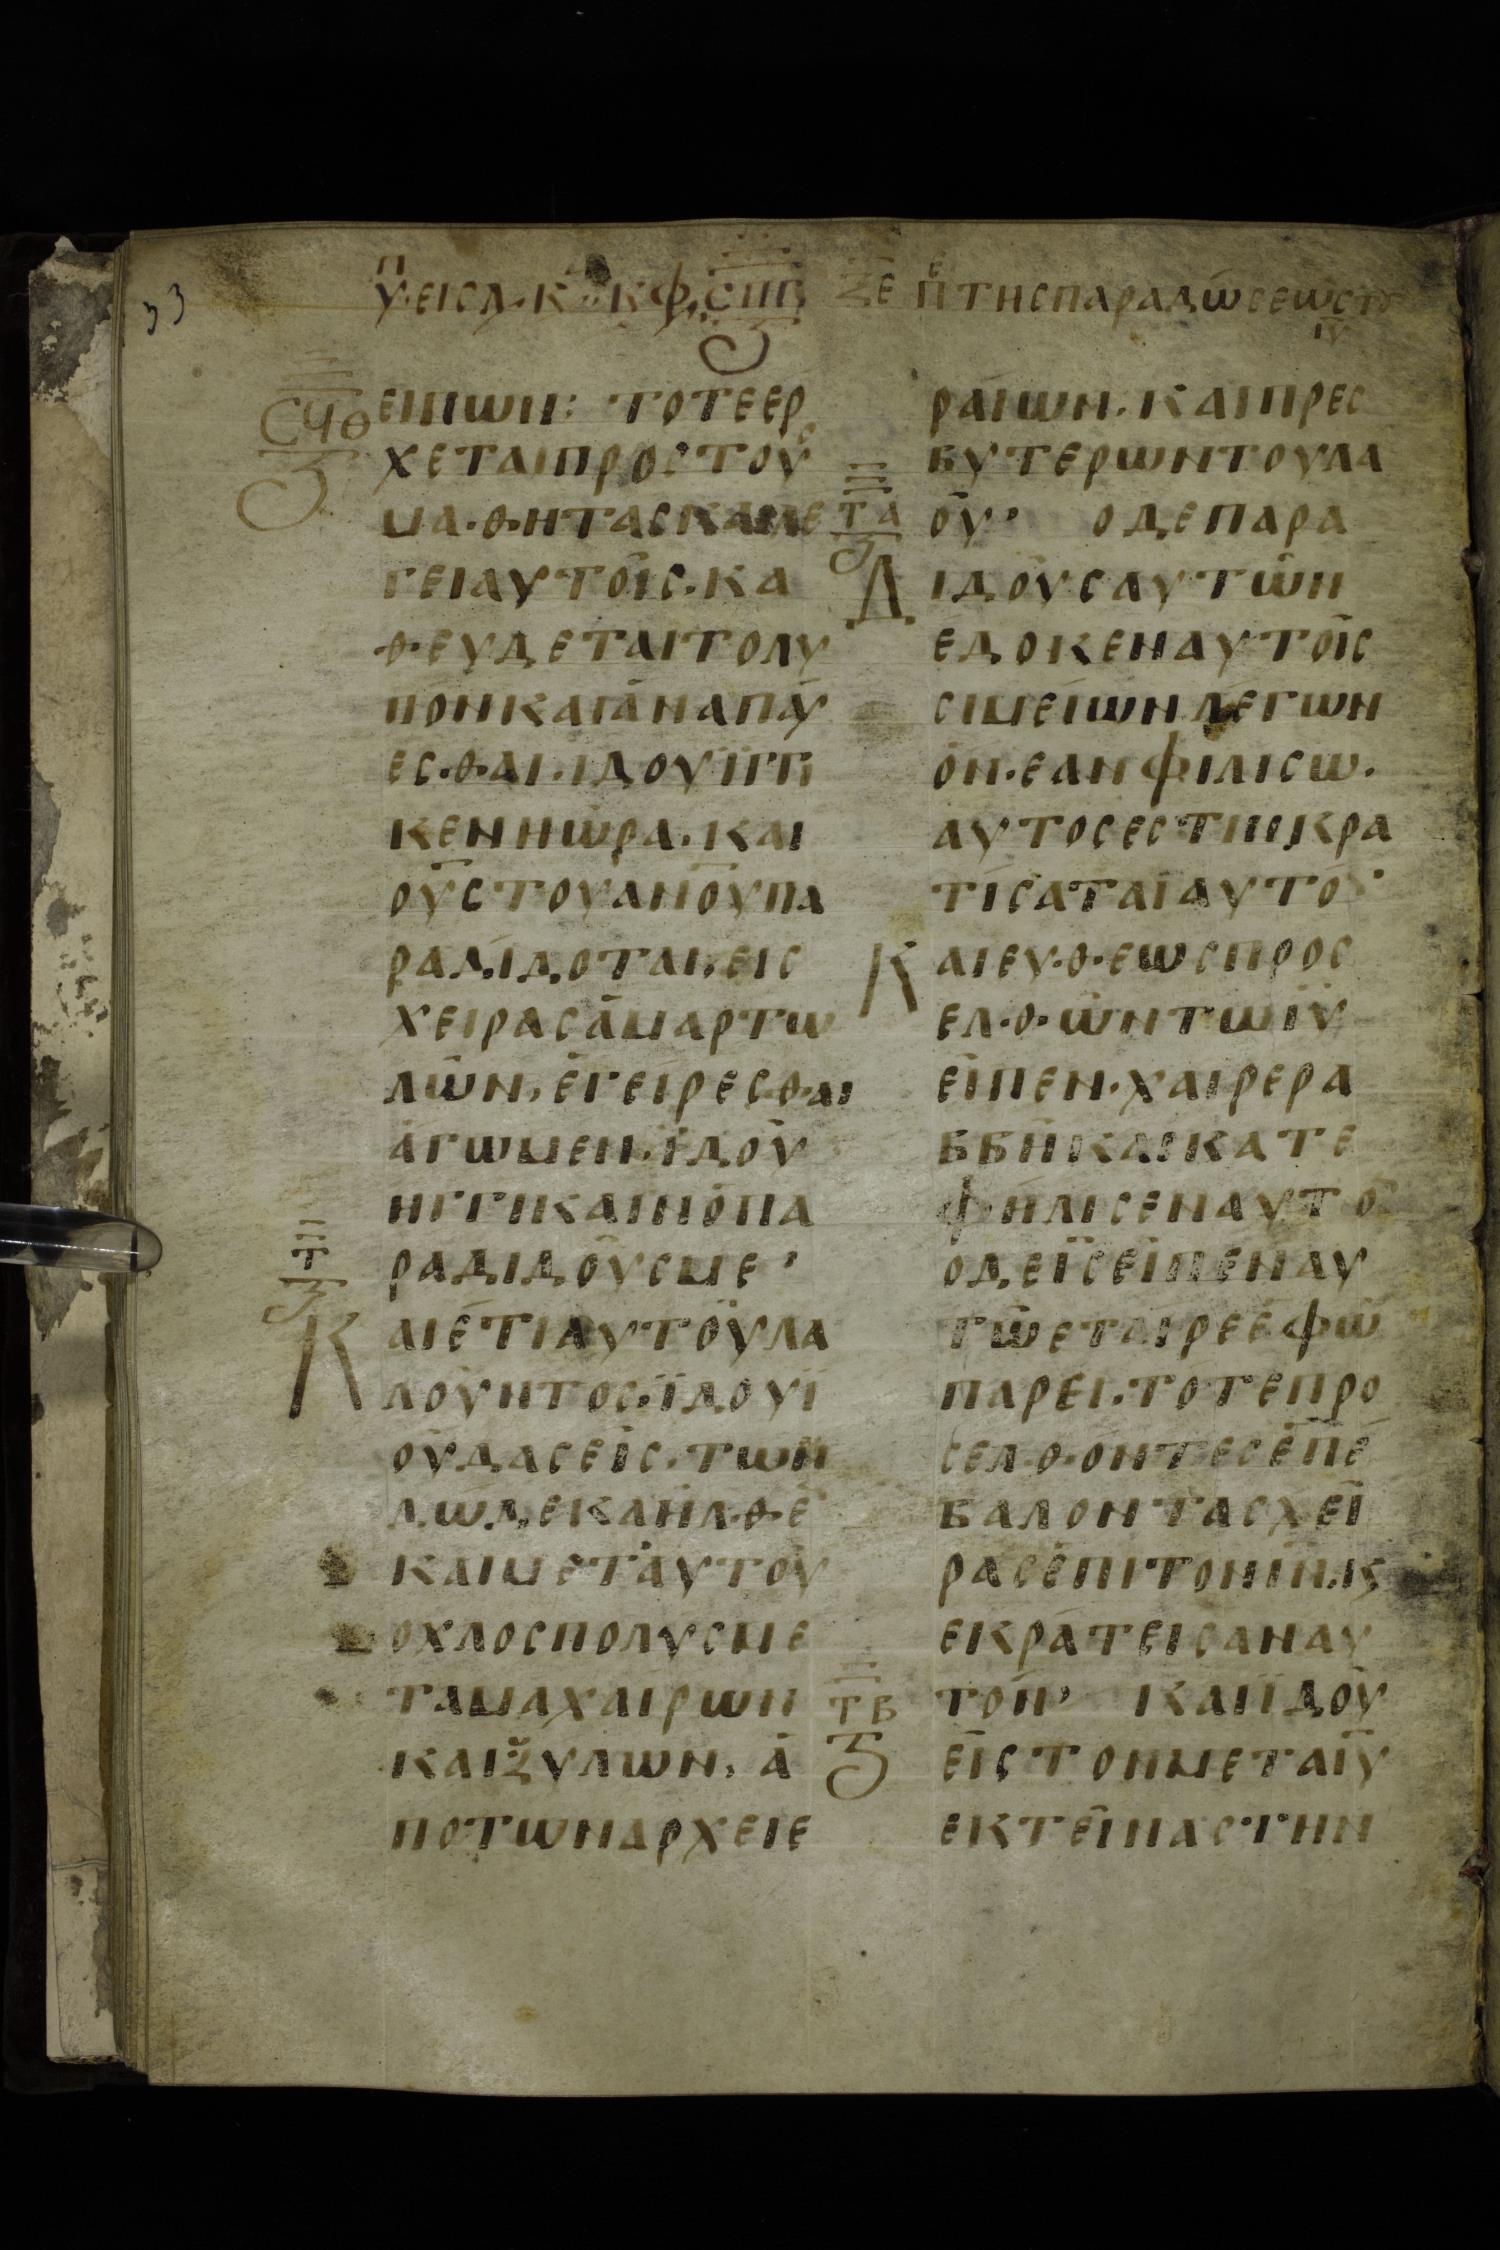 33
ΞΕ Π ΤΗС ΠΑΡΑΔΩСΕΩС ΤΟΥ ΙΥ
СЧΘ
Ϛ
ΕΙΠΩΝ: ΤΟΤΕ ΕΡ
ΧΕΤΑΙ ΠΡΟС ΤΟΥС
ΜΑΘΗΤΑС ΚΑΙ ΛΕ
ΓΕΙ ΑΥΤΟΙС. ΚΑ
ΘΕΥΔΕΤΑΙ ΤΟ ΛΥ
ΠΟΝ ΚΑΙ ΑΝΑΠΑΥ
ΕСΘΑΙ. ΙΔΟΥ ΙΓΓΙ
ΚΕΝ Η ΩΡΑ. ΚΑΙ
ΟΥС ΤΟΥ ΑΝΟΥ ΠΑ
ΡΑΔΙΔΟΤΑΙ. ΕΙС
ΧΕΙΡΑС ΑΜΑΡΤΩ
ΛΩΝ, ΕΓΕΙΡΕСΘΑΙ
ΑΓΩΜΕΝ. ΙΔΟΥ
ΗΓΓΙΚΑΙΝ Ο ΠΑ
ΡΑΔΙΔΟΥС ΜΕ,
Τ
Ϛ
ΚΑΙ ΕΤΙ ΑΥΤΟΥ ΛΑ
ΛΟΥΝΤΟС. ΙΔΟΥ Ι
ΟΥΔΑС ΕΙС. ΤΩΝ
ΔΩΔΕΚΑ ΗΛΘΕ
ΚΑΙ ΜΕΤ ΑΥΤΟΥ
ΟΧΛΟС ΠΟΛΥС ΜΕ
ΤΑ ΜΑΧΑΙΡΩΝ
ΚΑΙ ΞΥΛΩΝ, Α
ΠΟ ΤΩΝ ΑΡΧΕΙΕ
ΡΑΙΩΝ. ΚΑΙ ΠΡΕС
ΒΥΤΕΡΩΝ ΤΟΥ ΛΑ
ΤΑ
Ϛ
ΟΥ, Ο ΔΕ ΠΑΡΑ
ΔΙΔΟΥС ΑΥΤΩΝ
ΕΔΟΚΕΝ ΑΥΤΟΙС
СΙΜΕΙΩΝ ΛΕΓΩΝ
ΟΝ. ΕΑΝ ΦΙΛΙСΩ.
ΑΥΤΟС ΕСΤΙΝ, ΚΡΑ
ΤΙСΑΤΑΙ ΑΥΤΟΥ
ΚΑΙ ΕΥΘΕΩС ΠΡΟС
ΕΛΘΩΝ ΤΩ ΙΥ
ΕΙΠΕΝ. ΧΑΙΡΕ ΡΑ
ΒΒΗ ΚΑΙ ΚΑΤΕ
ΦΗΛΙСΕΝ ΑΥΤΟ
Ο ΔΕ ΙС ΕΙΠΕΝ ΑΥ
ΤΩ ΕΤΑΙΡΕ ΕΦ Ω
ΠΑΡΕΙ. ΤΟΤΕ ΠΡΟ
СΕΛΘΟΝΤΕС ΕΠΕ
ΒΑΛΟΝ ΤΑС ΧΕΙ
ΡΑС ΕΠΙ ΤΟΝ ΙΝ. Κ
ΕΚΡΑΤΕΙСΑΝ ΑΥ
ΤΒ
Ϛ
ΤΟΝ, ΚΑΙ ΙΔΟΥ
ΕΙС ΤΟΝ ΜΕΤΑ ΙΥ
ΕΚΤΕΙΝΑС ΤΗΝ